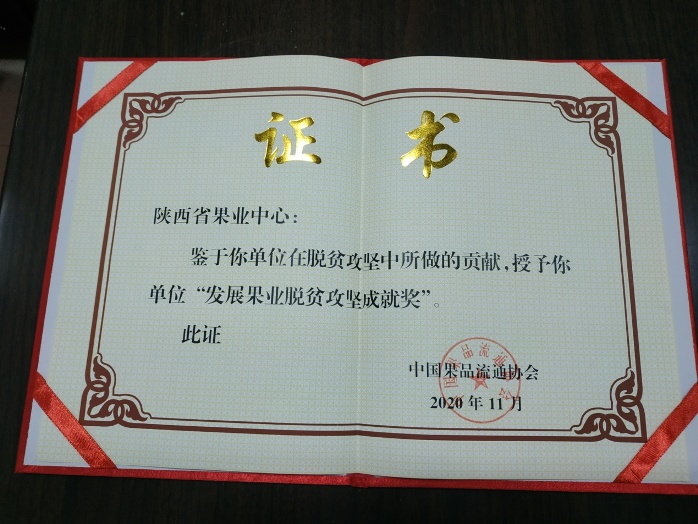 证书
陕西省果业中心：
鉴于你单位在脱贫攻坚中所做的贡献，授予你
单位“发展果业脱贫攻坚成就奖”。
此证
中国果品流通协会
2020年11月